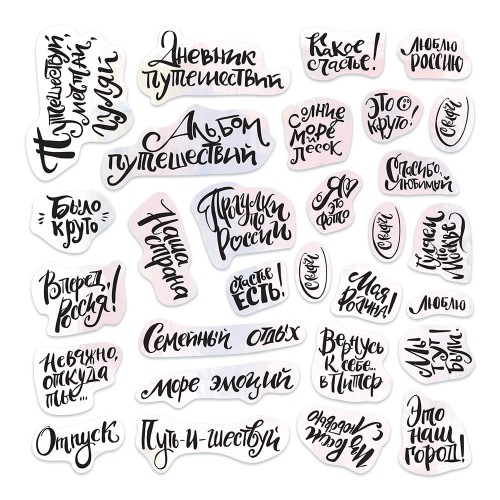 Путешествуй,
мечтай,
гуляй
Дневник
путешествий
Какое
счастье!
Люблю
Россию
Альбом
путешествий
Солнце
море
и
песок
Это
круто!
Спасибо,
любимый
Было
круто
Наша
страна
Прогулки
по
России
Я
это
фото
Гуляем
по
Москве
Вперед,
Россия!
счастье
ЕСТЬ!
Моя
Родина!
люблю
Семейный отдых
Неважно,
откуда
ты...
море эмоций
Вернусь
к себе...
в Питер
Мы
тут
были!
Отпуск
Путь-и-шествуй
Это
наш
город!